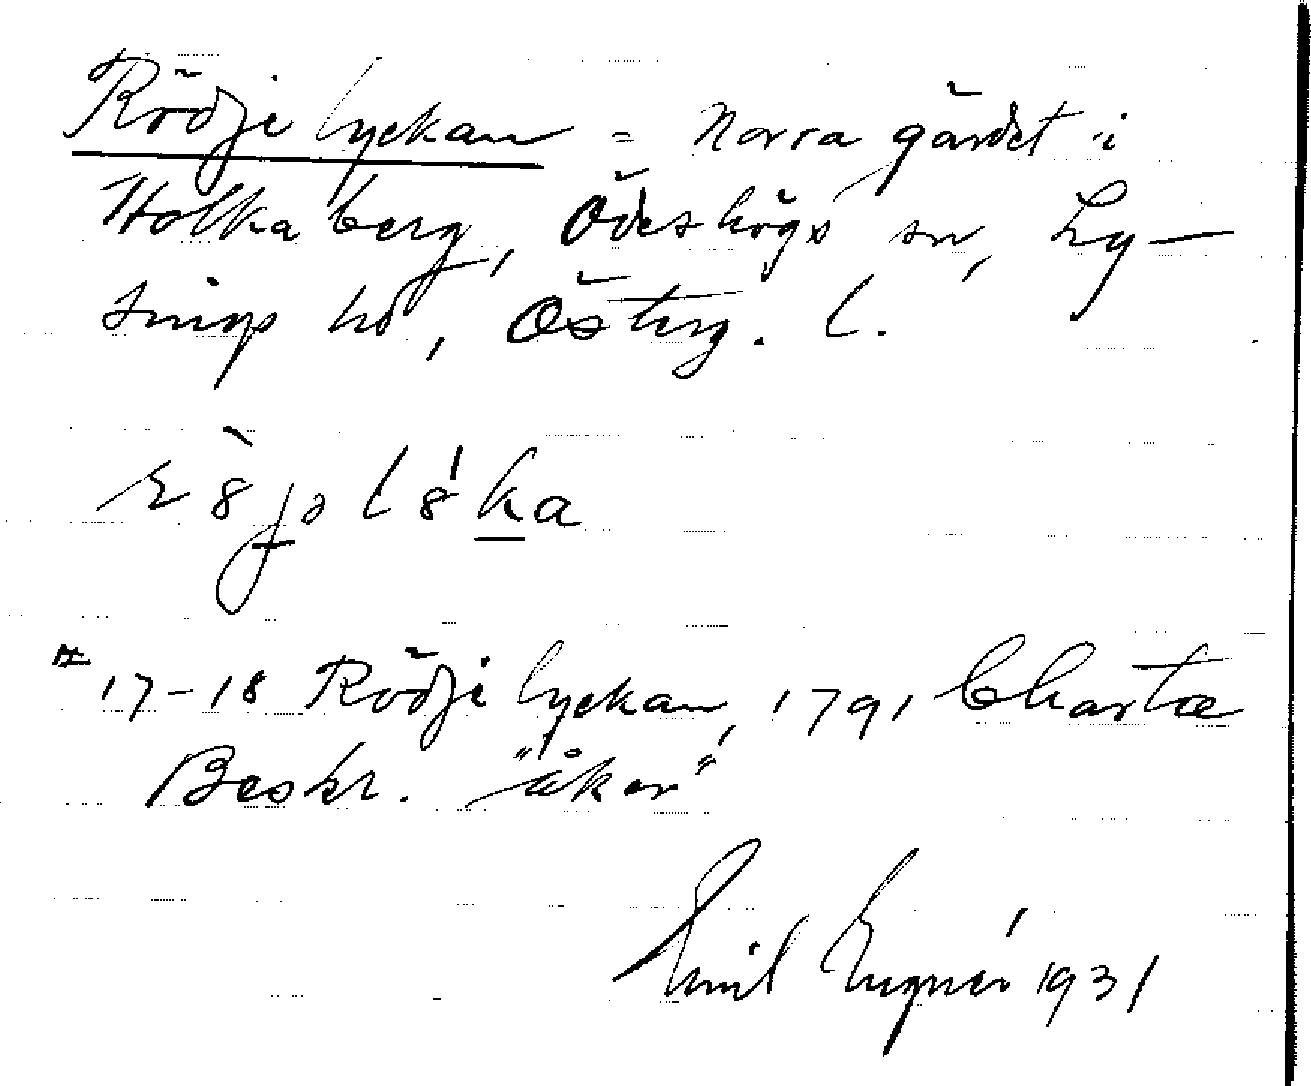 Rödje lyckan = Norra gärdet i
Holkaberg, Ödeshögs sn, Ly-
sings hd, Österg. l.
17-18 Rödje lyckan, 1791 Charta
Beskr. "åker"
Emil 1931